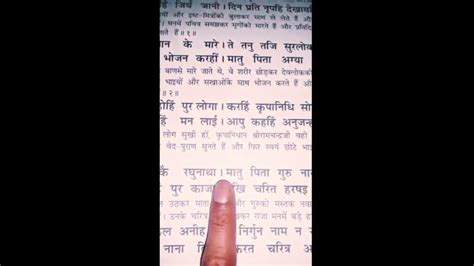 हिं जियँ जानी। दिन प्रति नृपहि देखाव
इयों और इष्ट-मित्रोंको बुलाकर साथ ले लेते हैं और
मनमें पवित्र समझकर मृगोंको मारते हैं और प्रतिदिन
॥ १ ॥
बान के मारे। ते तनु तजि सुरलोक
भोजन करहीं। मातु पिता अग्या
बाणसे मारे जाते थे, वे शरीर छोड़कर देवलोकको
भाइयों और सखाओंके साथ भोजन करते हैं और
॥ २ ॥
होहिं पुर लोगा। करहिं कृपानिधि सो
मन लाई। आपु कहहिं अनुजन्ह
लोग सुखी हों, कृपानिधान श्रीरामचन्द्रजी वही
वेद-पुराण सुनते हैं और फिर स्वयं छोटे भाइ
कै रघुनाथा। मातु पिता गुरु ना
पुर काजा। देखि चरित हरषइ
उठकर माता और गुरुको मस्तक नवा
उनके चरित्र राजा मनमें बड़े ह
कल अनीह निर्गुन नाम न
नाना करत चरित्र अ